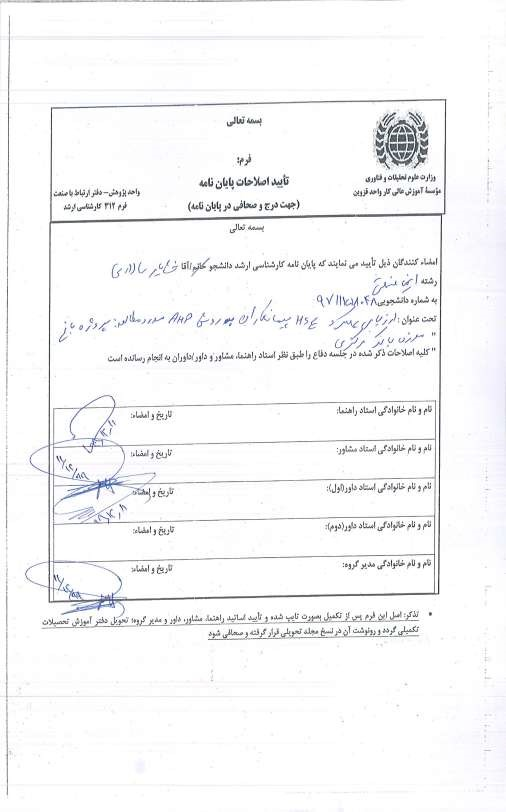 بسمه تعالی
فرم:
تأیید اصلاحات پایان نامه
(جهت درج و صحافی در پایان نامه)
وزارت علوم تحقیقات و فناوری
مؤسسهٔ آموزش عالی کار واحد قزوین
واحد پژوهش – دفتر ارتباط با صنعت
فرم ۳۱۲ کارشناسی ارشد
بسمه تعالی
امضاء کنندگان ذیل تأیید می نمایند که پایان نامه کارشناسی ارشد دانشجو خانم/آقا
رشته ایمنی صنعتی
به شماره دانشجویی
تحت عنوان : ارزیابی عملکرد HSE پیمانکاران به روش AHP مورد مطالعه: پروژه باغ
موزه بانک مرکزی
" کلیه اصلاحات ذکر شده در جلسه دفاع را طبق نظر استاد راهنما، مشاور و داور/داوران به انجام رسانده است
نام و نام خانوادگی استاد راهنما: تاریخ و امضاء:
نام و نام خانوادگی استاد مشاور: تاریخ و امضاء:
نام و نام خانوادگی استاد داور(اول): تاریخ و امضاء:
نام و نام خانوادگی استاد داور(دوم): تاریخ و امضاء:
نام و نام خانوادگی مدیر گروه: تاریخ و امضاء:
• تذکر: اصل این فرم پس از تکمیل بصورت تایپ شده و تأیید اساتید راهنما، مشاور، داور و مدیر گروه؛ تحویل دفتر آموزش تحصیلات
تکمیلی گردد و رونوشت آن در نسخ مجلد تحویلی قرار گرفته و صحافی شود